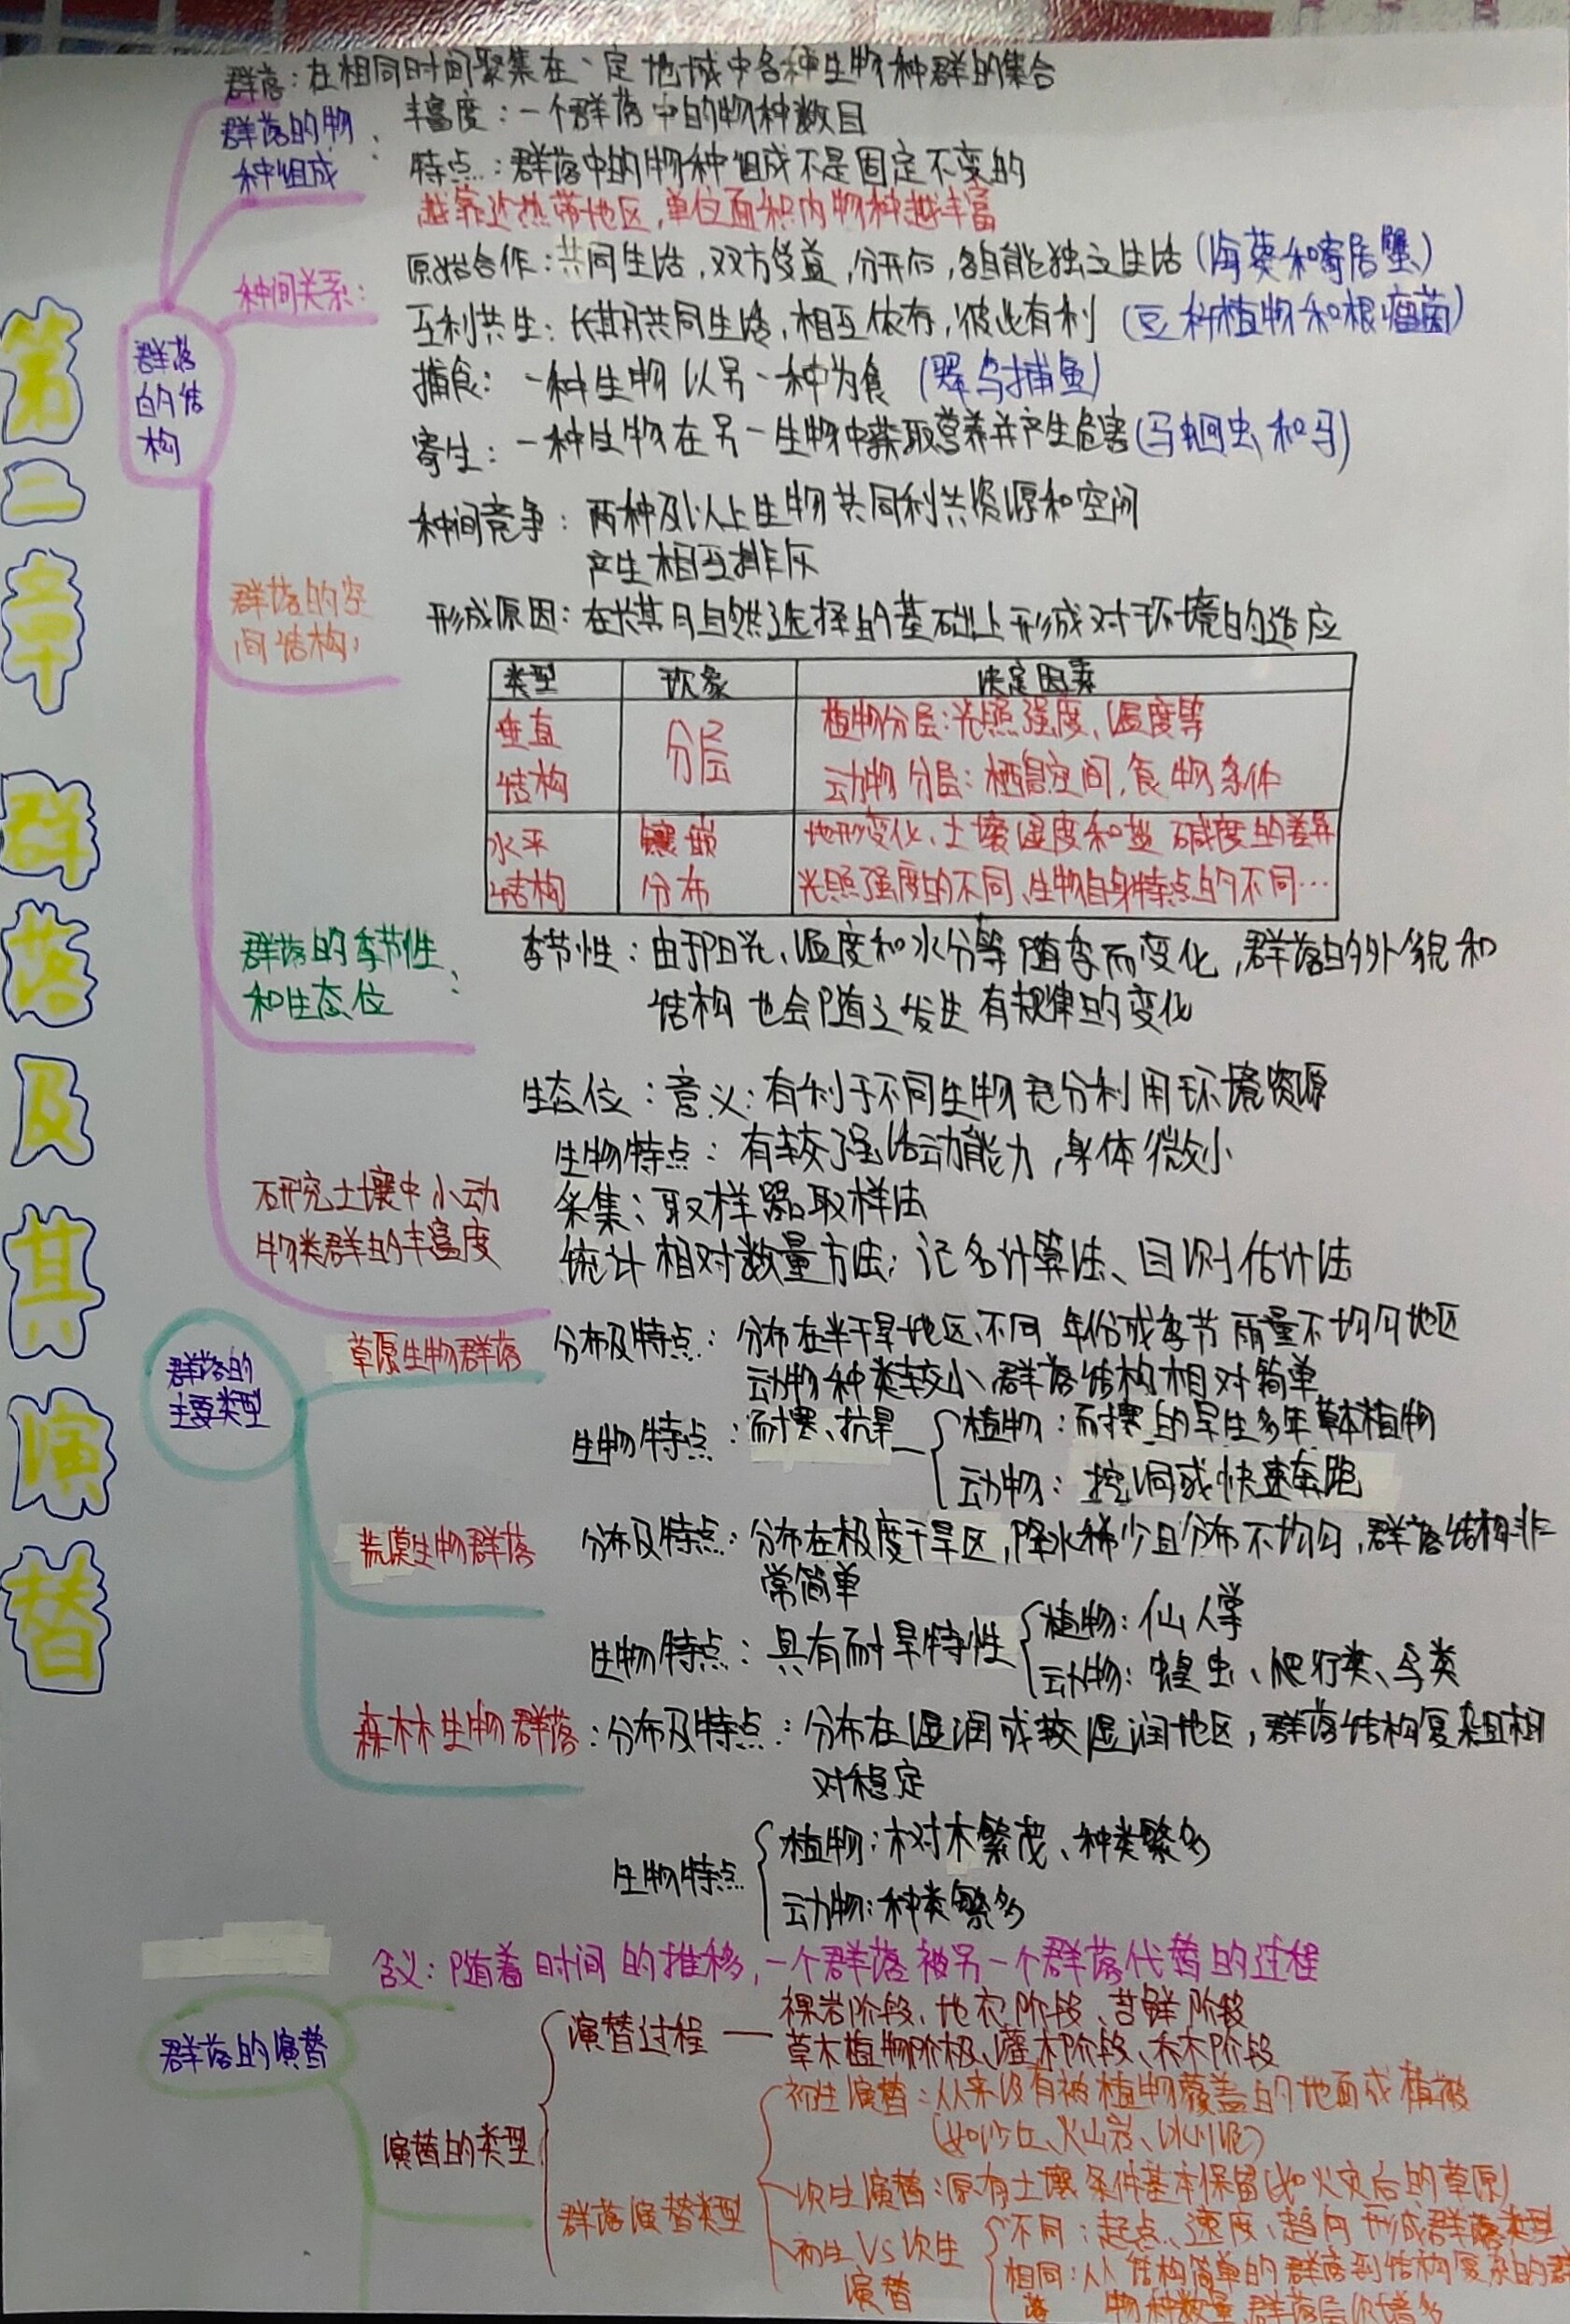 第二章 群落及其演替
群落的结构
群落：在相同时间聚集在一定地域中各种生物种群的集合
群落的物
种组成：
丰富度：一个群落中的物种数目
特点：群落中的物种组成不是固定不变的
越靠近热带地区，单位面积内物种越丰富
种间关系：
原始合作：共同生活，双方受益，分开后，各自能独立生活（海葵和寄居蟹）
互利共生：长期共同生活，相互依存，彼此有利（豆科植物和根瘤菌）
捕食：一种生物以另一种为食（翠鸟捕鱼）
寄生：一种生物在另一生物中获取营养并产生危害（马蛔虫和马）
种间竞争：两种及以上生物共同利共资源和空间
产生相互排斥
群落的空
间结构：
形成原因：在长期自然选择的基础上形成对环境的适应
类型 现象 决定因素
垂直 结构 分层
植物分层：光照强度、温度等
动物分层：栖息空间，食物条件
水平 结构 镶嵌 分布
地形变化、土壤湿度和盐碱度的差异
光照强度的不同、生物自身特点的不同…
群落的季节性
和生态位：
季节性：由于阳光、温度和水分等随季而变化，群落的外貌和
结构也会随之发生有规律的变化
生态位：意义：有利于不同生物充分利用环境资源
研究土壤中小动
物类群的丰富度
生物特点：有较强活动能力，身体微小
采集：取样器取样法
统计相对数量方法：记名计算法、目测估计法
群落的
主要类型
草原生物群落
分布及特点：分布在半干旱地区、不同年份或季节雨量不均匀地区
动物种类较少、群落结构相对简单
生物特点：耐寒、抗旱
植物：耐寒的旱生多年草本植物
动物：挖洞或快速奔跑
荒漠生物群落
分布及特点：分布在极度干旱区，降水稀少且分布不均匀，群落结构非
常简单
生物特点：具有耐旱特性
植物：仙人掌
动物：蝗虫、爬行类、鸟类
森林生物群落：分布及特点：分布在湿润或较湿润地区，群落结构复杂且相
对稳定
生物特点
植物：树木繁茂、种类繁多
动物：种类繁多
群落的演替
含义：随着时间的推移，一个群落被另一个群落代替的过程
演替的类型
演替过程 — 裸岩阶段、地衣阶段、苔鲜阶段
草木植物阶极、灌木阶段、乔木阶段
群落演替类型
初生演替：从来没有被植物覆盖的地面或植被
（如沙丘、火山岩、冰川泥）
次生演替：原有土壤条件基本保留（如火灾后的草原）
初生VS次生
演替
不同：起点、速度、趋向 形成群落类型
相同：从结构简单的群落到结构复杂的群
落 物种数量，群落层次增多